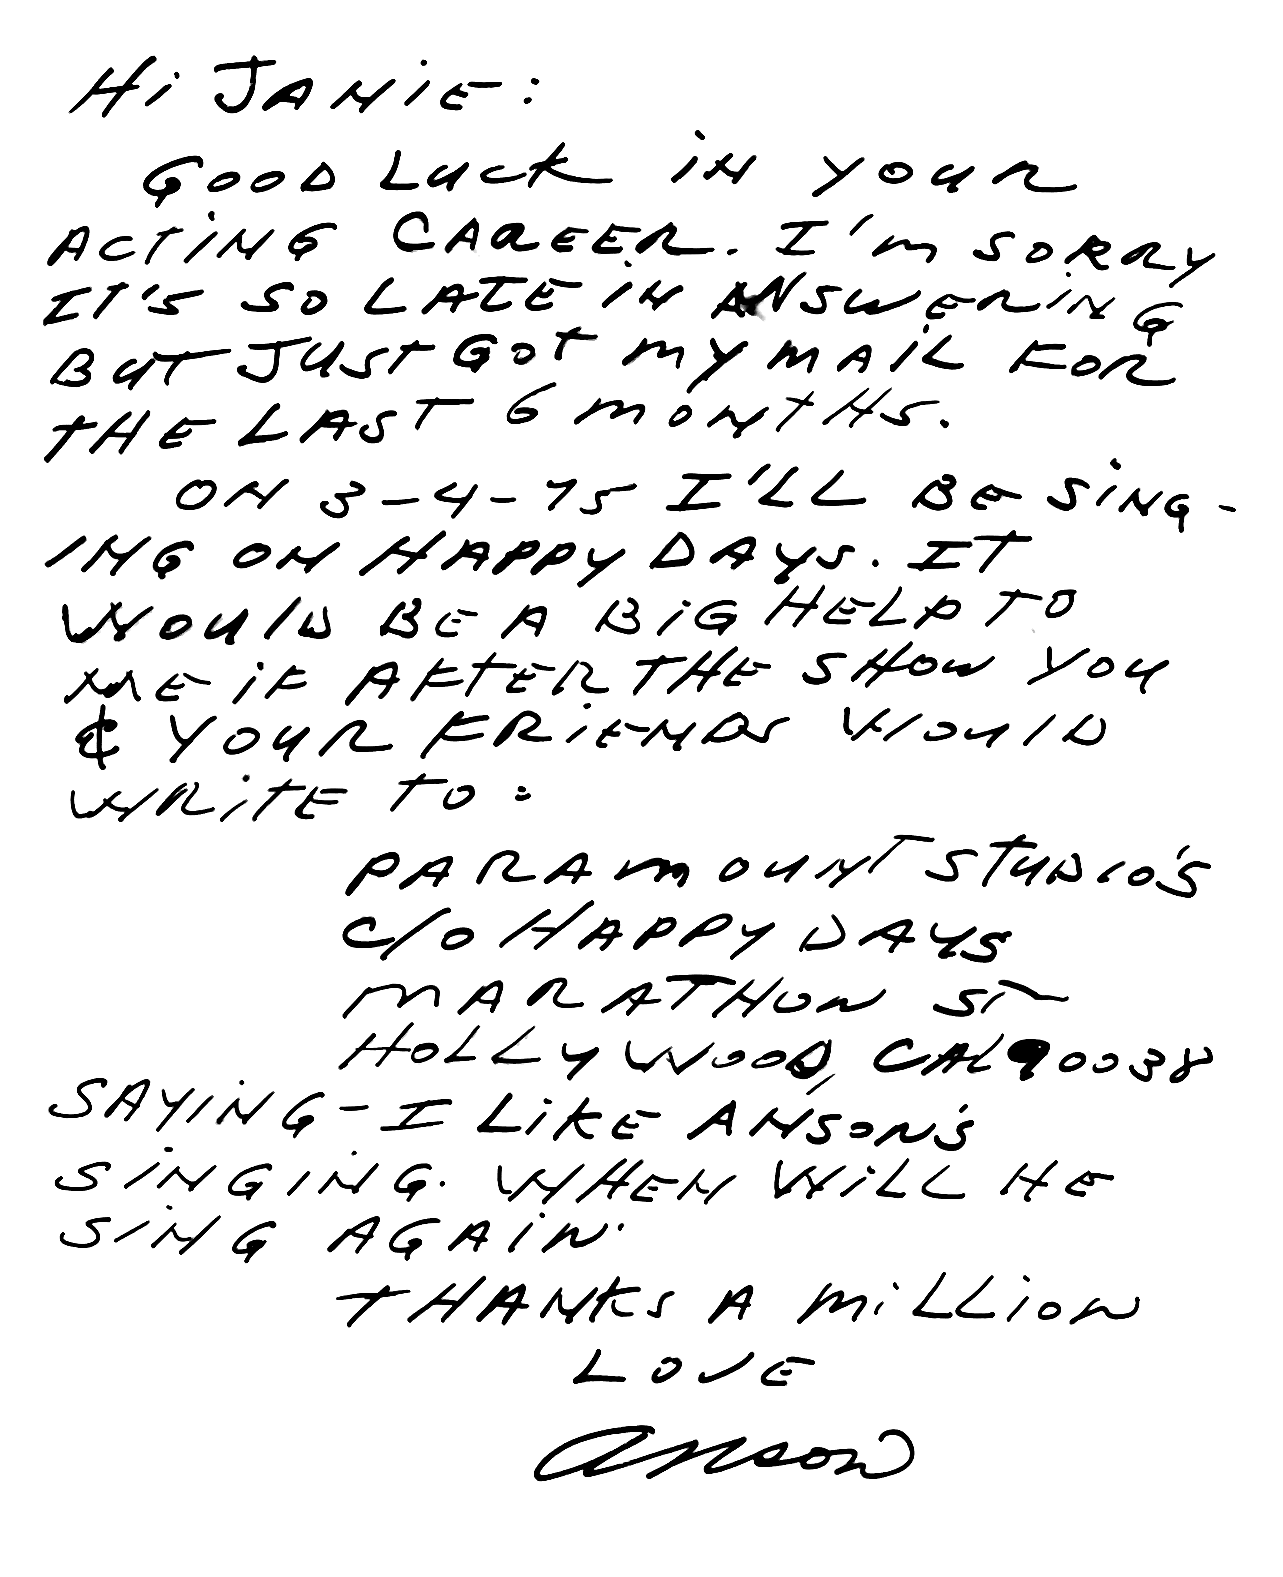 Hi JANiE:
GOOD LUCK iN YOUR
ACTiNG CAREER. I'm SORRY
IT'S SO LATE iN ANSWERiNG
BUT JUST GOT mY mAiL FOR
THE LAST 6 mONTHS.
ON 3-4-75 I'LL BE SiNG-
ING ON HAPPY DAYS. IT
WOULD BE A BiG HELP TO
ME iF AFTER THE SHOW YOU
& YOUR FRiENDS WOULD
WRiTE TO:
PARAmOUNT STUDiO'S
C/O HAPPY DAYS
mARATHON ST
HOLLYWOOD, CAL 90038
SAYiNG - I LiKE ANSON'S
SiNGiNG. WHEN WiLL HE
SiNG AGAiN.
THANKS A MiLLiON
LOVE
Anson